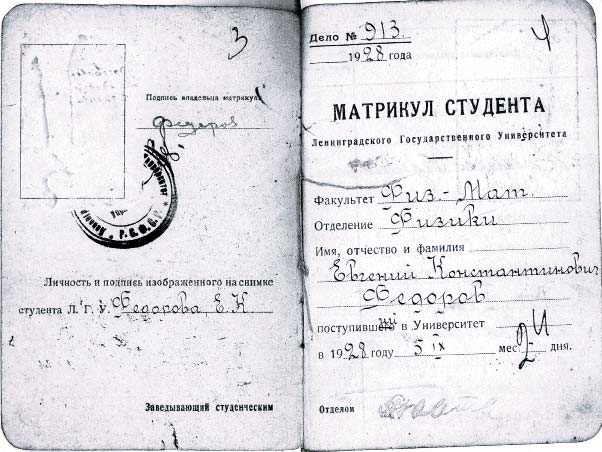 3
Подпись владельца матрикула
Федоров
Р.С.Ф.С.Р.
Личность и подпись изображенного на снимке
студента Л. Г. У. Федорова, Е. К.
Заведывающий студенческим
4
Дело № 913
1928 года
МАТРИКУЛ СТУДЕНТА
Ленинградского Государственного Университета
Факультет Физ.-Мат.
Отделение Физики
Имя, отчество и фамилия
Евгений Константинович
Федоров
поступивший в Университет
в 1928 году 5 IX мес. 24 дня.
Отделом